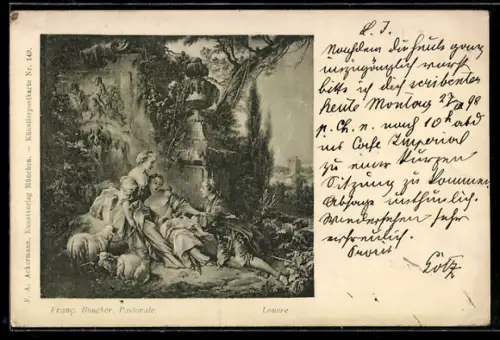 F. A. Ackermann, Kunstverlag München. – Künstlerpostkarte Nr. 149.
Franç. Boucher. Pastorale.
Louvre
L. J.
Nachdem du heute ganz
unzugänglich warst
bitte ich dich
heute Montag
p. Ch. n. nach 10h abd
ins Cafe Imperial
zu einer kurzen
Sitzung zu kommen
Absage unthunlich.
Wiedersehen sehr
erfreulich.
Götz